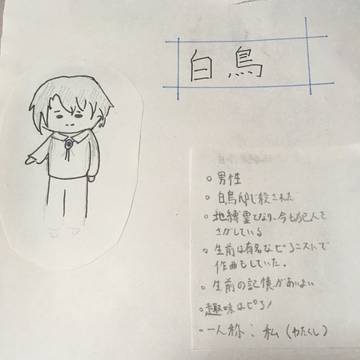 白鳥
○男性
○白鳥邸で殺された
○地縛霊となり、今も犯人を
さがしている
○生前は有名なピアニストで
作曲もしていた。
○生前の記憶があいまい
○趣味はピアノ
○一人称：私（わたくし）